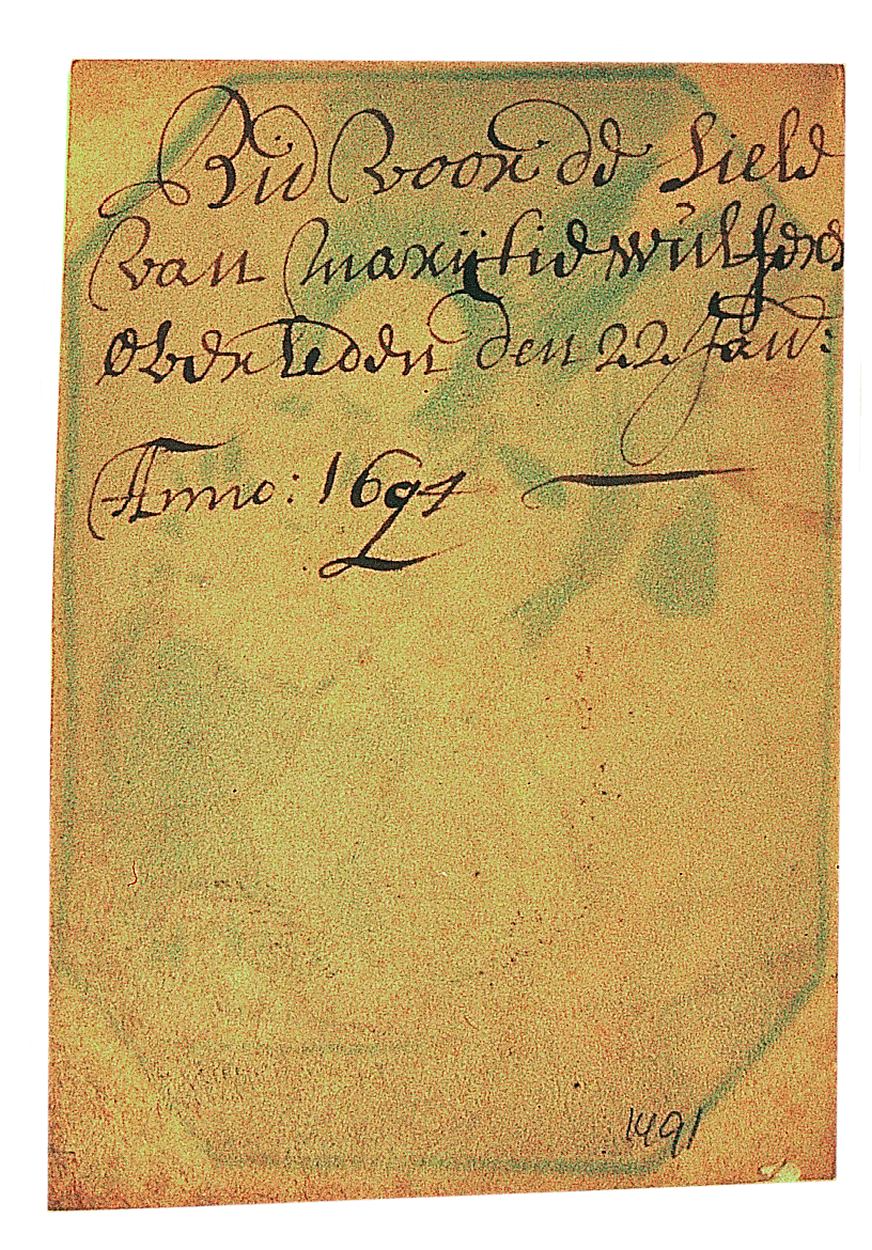 Bid voor de Siele
van marijtie wulfse
Overleden den 22 Jan:
Anno: 1694
1491